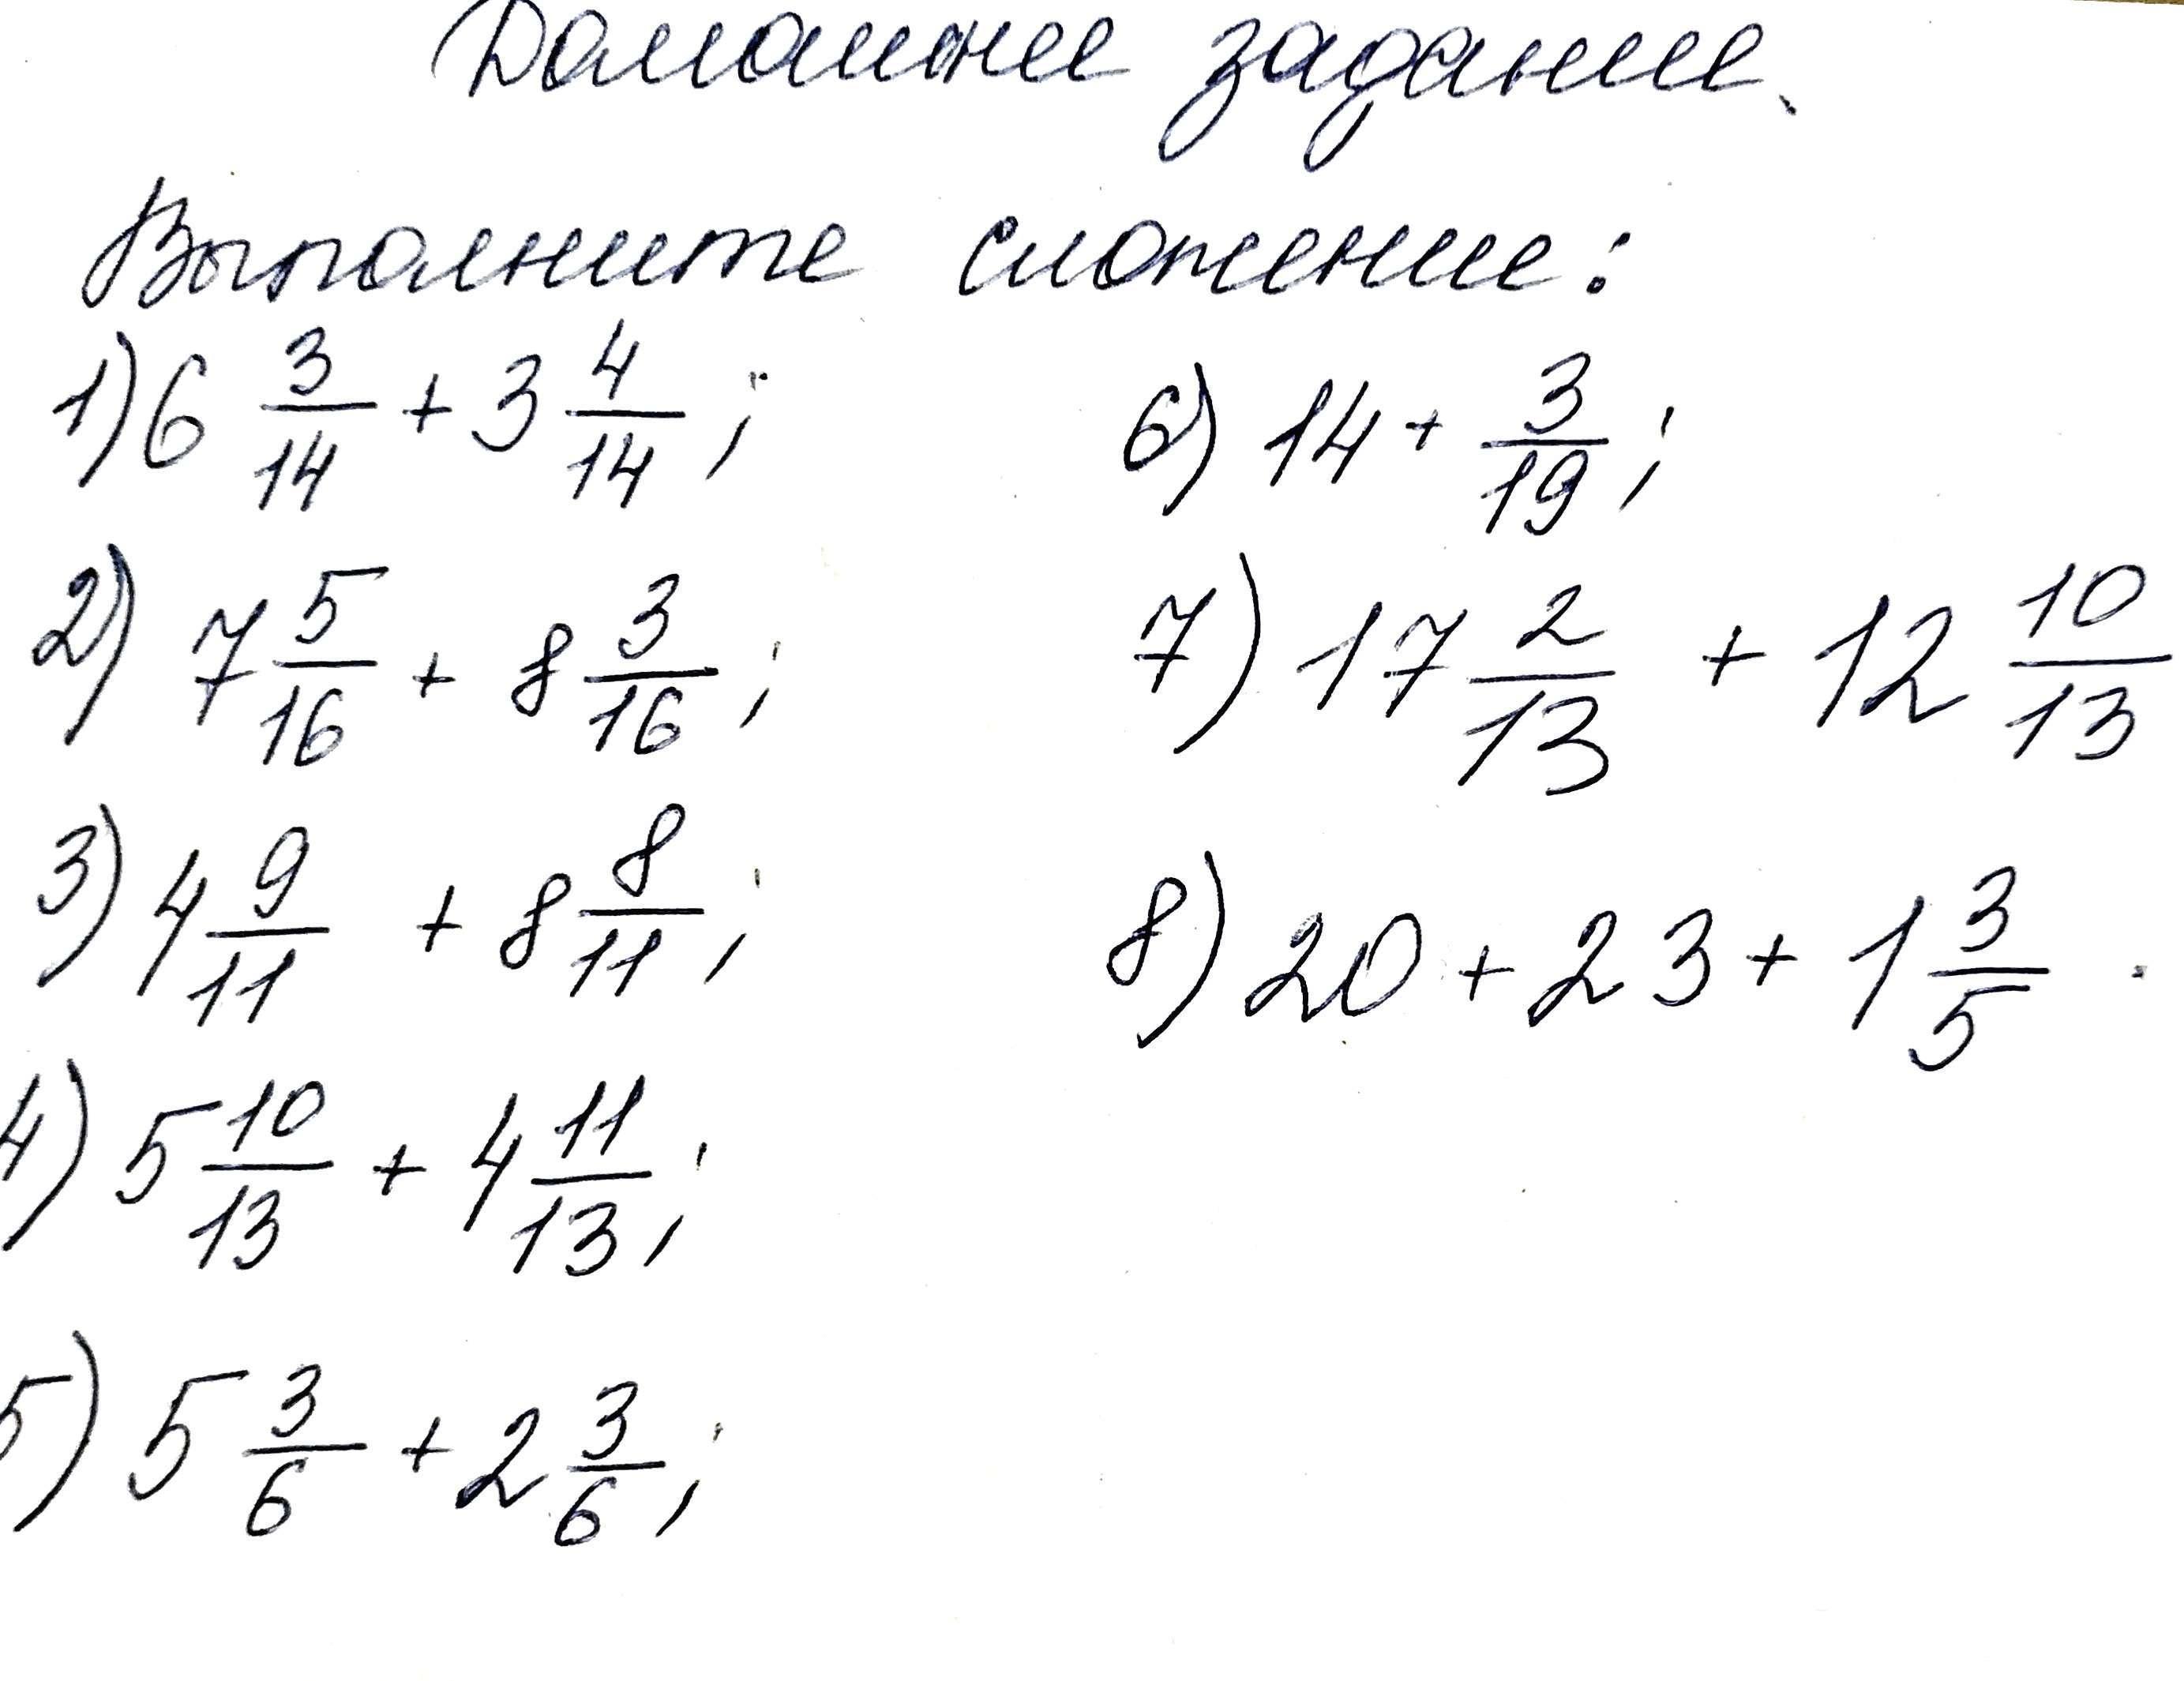 Домашнее задание.
Выполните сложение:
1) 6 3/14 + 3 4/14;
2) 7 5/16 + 8 3/16;
3) 4 9/11 + 8 8/11;
4) 5 10/13 + 4 11/13;
5) 5 3/6 + 2 3/6;
6) 14 + 3/19;
7) 17 2/13 + 12 10/13
8) 20 + 23 + 1 3/5.